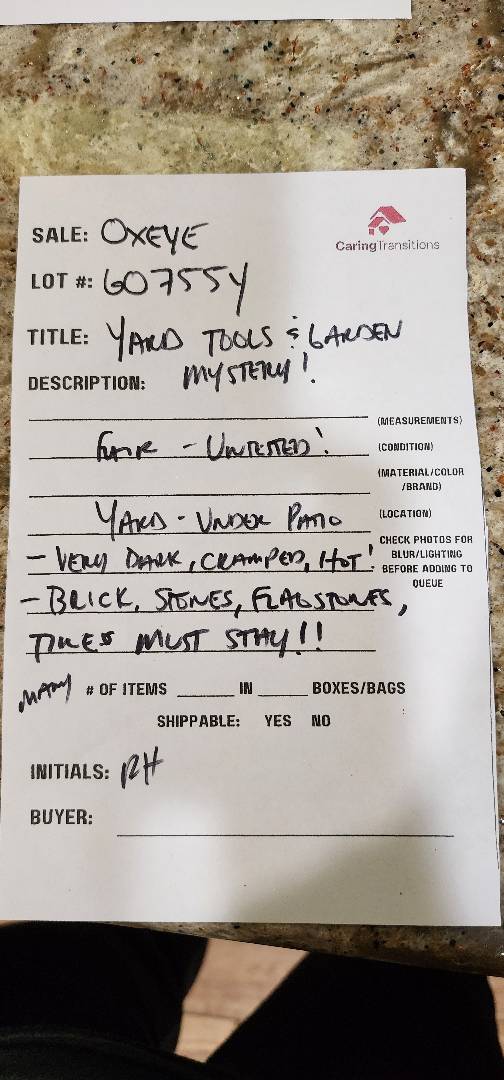 CaringTransitions
SALE: OXEYE
LOT #: 607554
TITLE: YARD TOOLS & GARDEN
MYSTERY!
DESCRIPTION:
(MEASUREMENTS)
FAIR - UNTESTED! (CONDITION)
(MATERIAL/COLOR
/BRAND)
YARD - UNDER PATIO (LOCATION)
- VERY DARK, CRAMPED, HOT!
CHECK PHOTOS FOR
BLUR/LIGHTING
BEFORE ADDING TO
QUEUE
- BRICK, STONES, FLAGSTONES,
MUST STAY!!
MANY # OF ITEMS IN BOXES/BAGS
SHIPPABLE: YES NO
INITIALS: RH
BUYER: